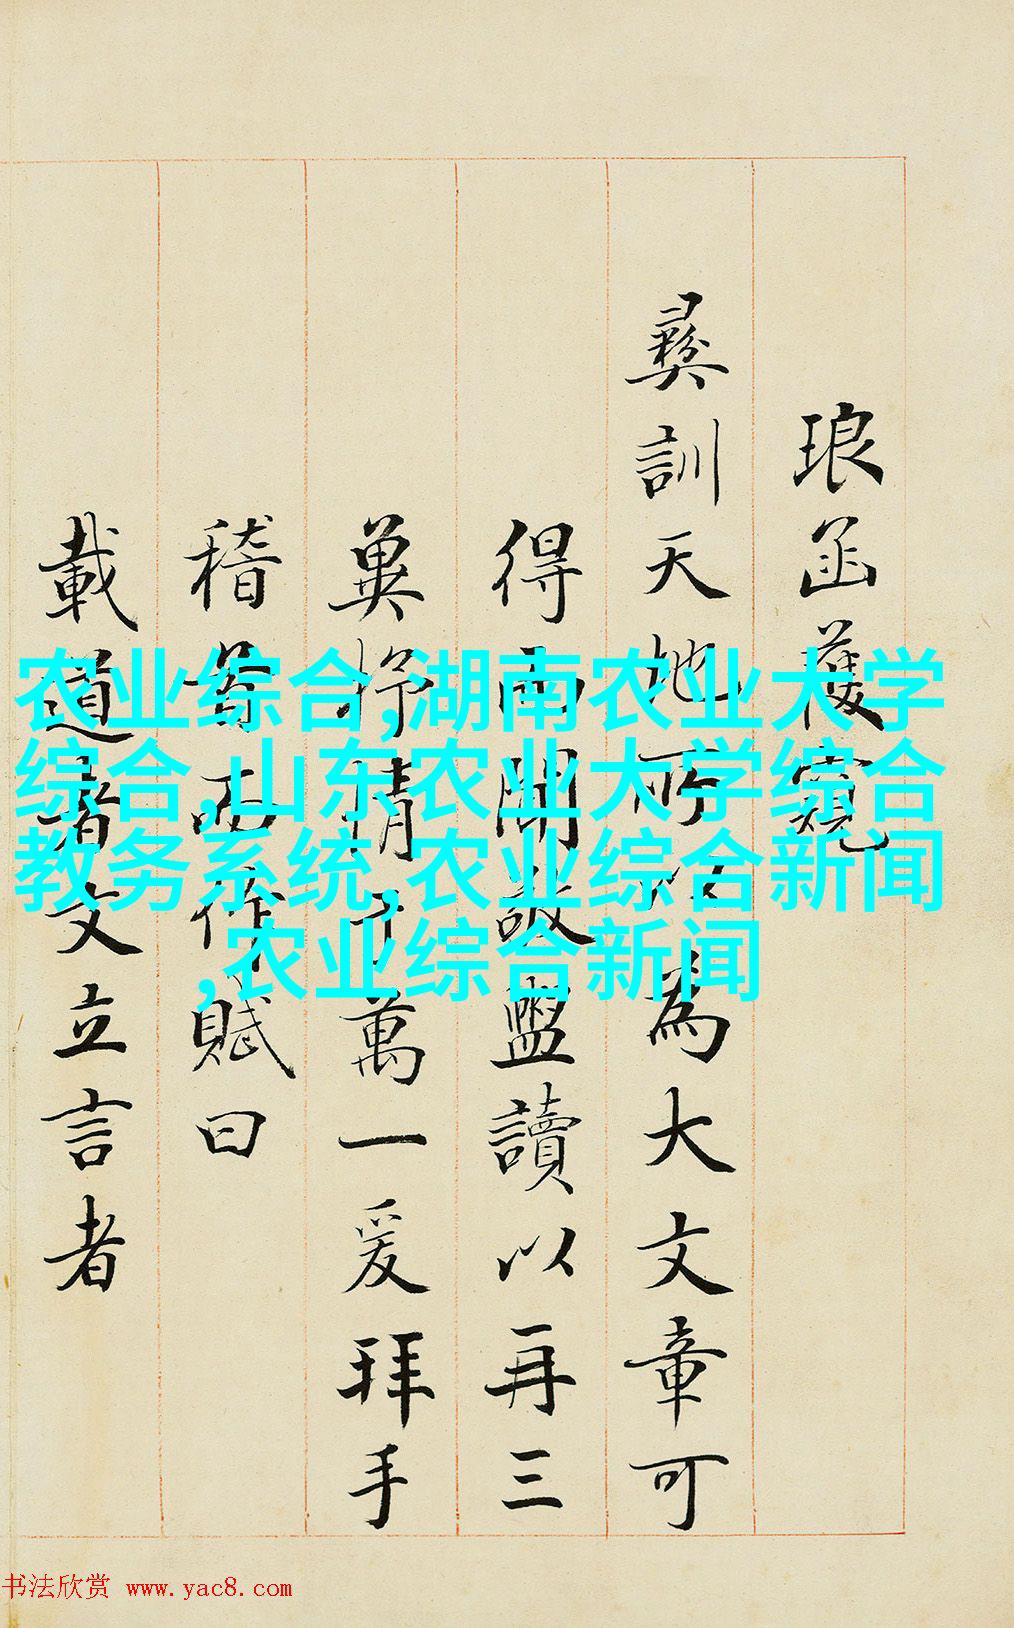 琅函獲窺
彝訓天地所以為大文章可
得而聞敬盥讀以再三
冀抒情于萬一爰拜手
稽首而作賦曰
載道者文立言者
农业综合,湖南农业大学
综合,山东农业大学综合
教务系统,农业综合新闻
,农业综合新闻
书法欣赏 www.yac8.com